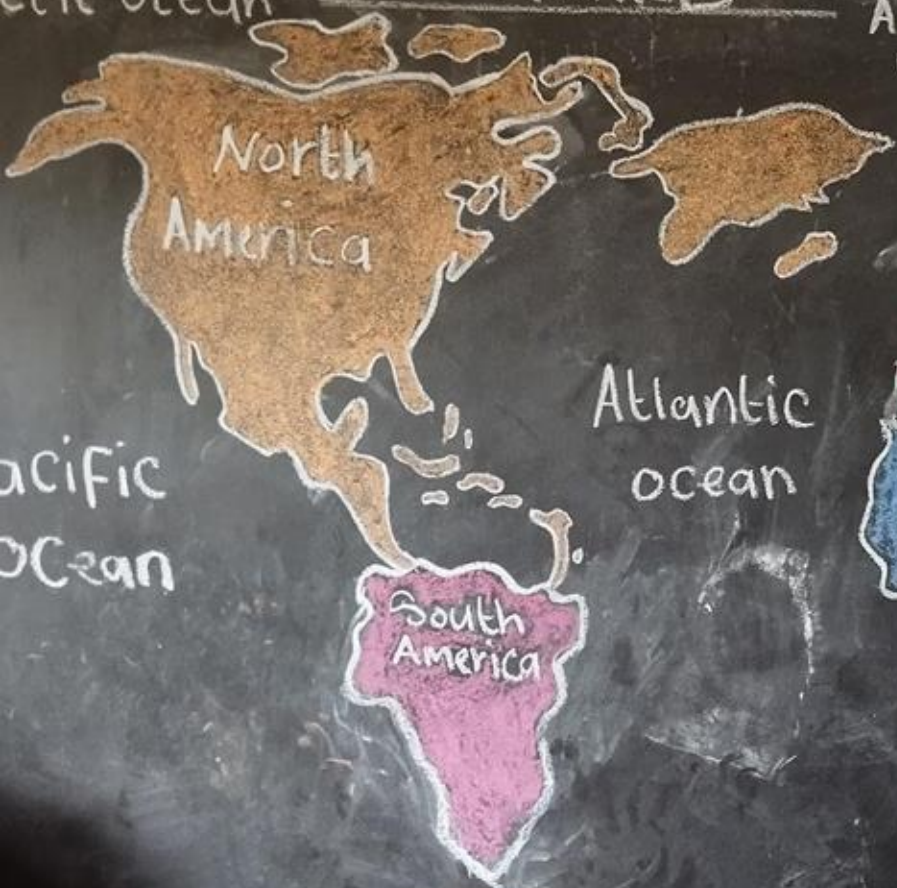 ctic ocean
A
North
America
Atlantic
ocean
acific
ocean
South
America